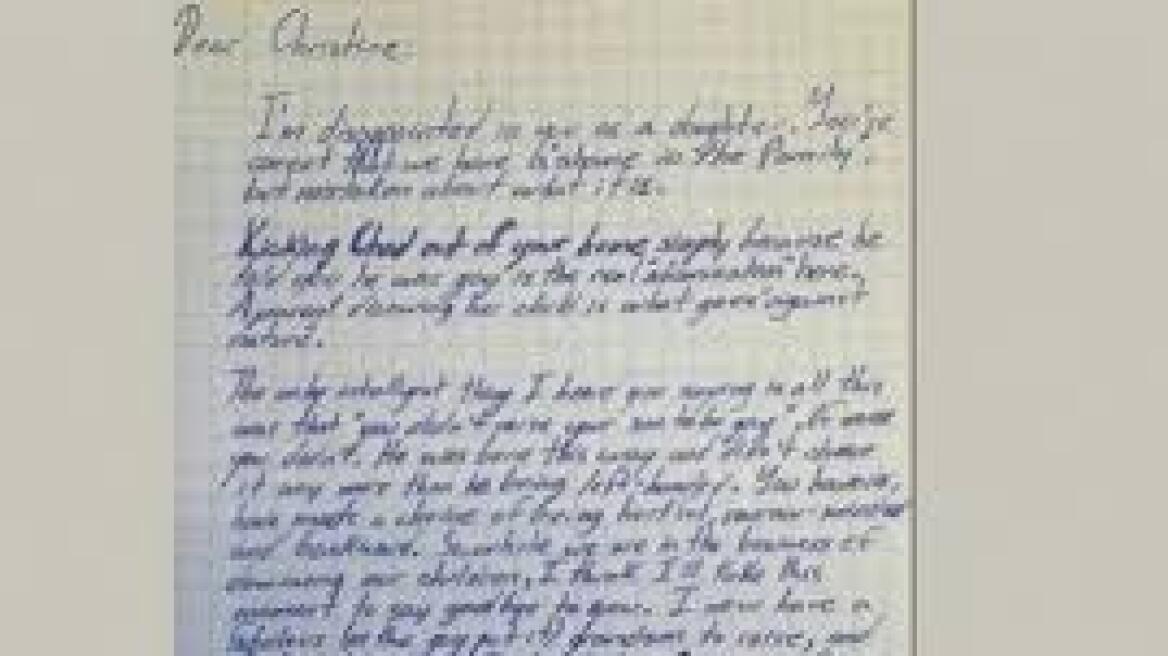 Dear Christine:
I'm disappointed in you as a daughter. You're
correct that we have a "shame in the family",
but mistaken about what it is.
Kicking Chad out of your home simply because he
told you he was gay is the real "abomination" here.
A parent disowning her child is what goes "against
nature".
The only intelligent thing I heard you saying in all this
was that "you didn't raise your son to be gay". Of course
you didn't. He was born this way and didn't choose
it any more than he being left-handed. You however,
have made a choice of being hurtful, narrow-minded
and backward. So, while we are in the business of
disowning our children, I think I'll take this
moment to say goodbye to you. I now have a
fabulous (as the gays put it) grandson to raise, and